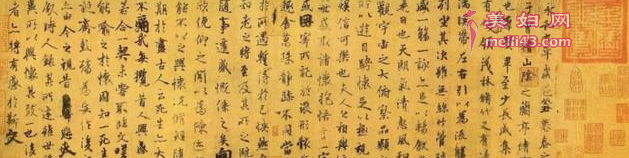 永和九年歲在癸丑暮春之
于會稽山陰之蘭亭脩禊
也群賢畢至少長咸集
有崇山峻領茂林脩竹又有清
湍暎帶左右引以為流觴
列坐其次雖無絲竹管弦
盛一觴一詠亦足以暢敘
是日也天朗氣清惠風和
觀宇宙之大俯察品類
所以遊目騁懷足以極視
娛信可樂也夫人之相與
一世或取諸懷抱悟言一室
或因寄所託放浪形骸
趣舍萬殊靜躁不同
於所遇暫得於己怏然自
知老之將至及其所之既
隨事遷感慨係之矣向
欣俛仰之閒以為陳迹
能不以之興懷況脩短隨化
期於盡古人云死生亦大
不痛哉每攬昔人興感
若合一契未嘗不臨文嗟
能喻之於懷固知一死生
誕齊彭殤為妄作後之
亦由今之視昔悲夫
敘時人錄其所述雖世殊
異所以興懷其致一也後
者亦將有感於斯文
美妇网
meili43.com